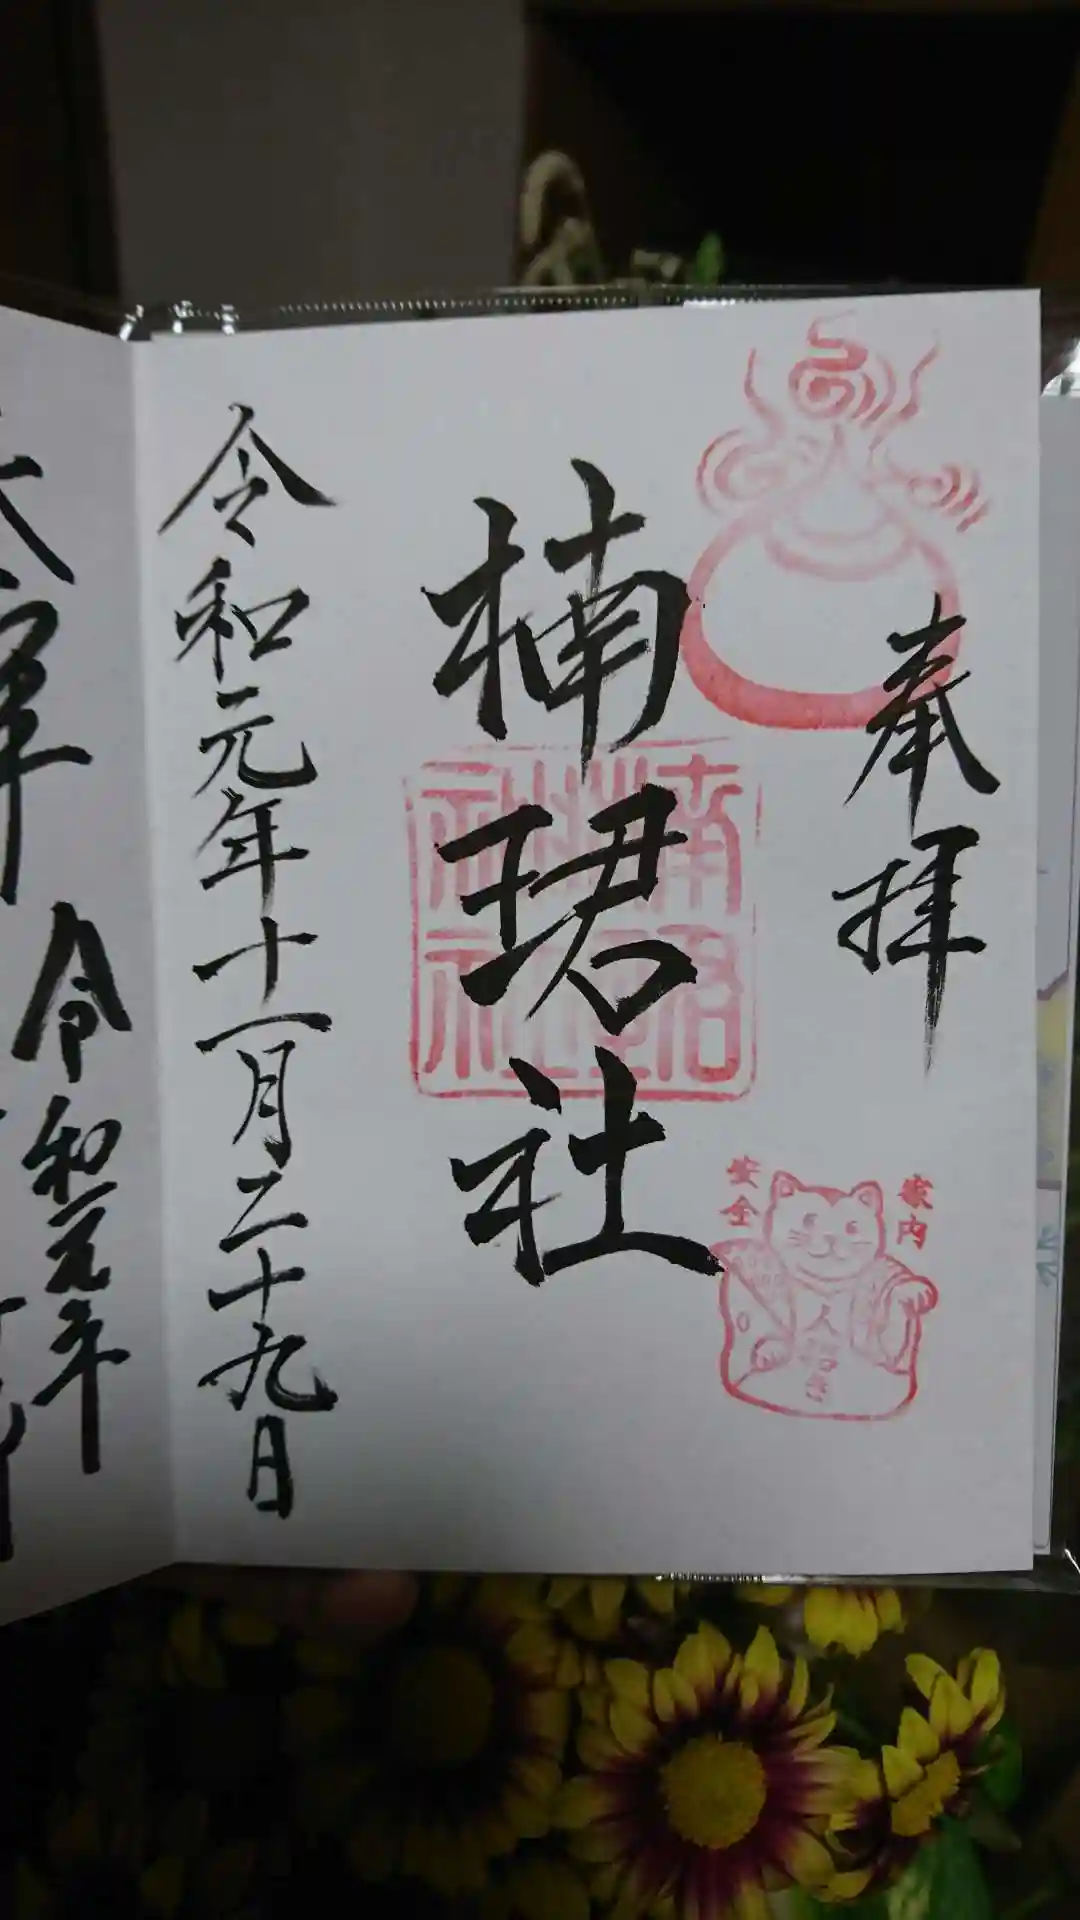 奉拝
家内
安全
人招き
楠珺社
楠珺社
令和元年十一月二十九日
令和元年